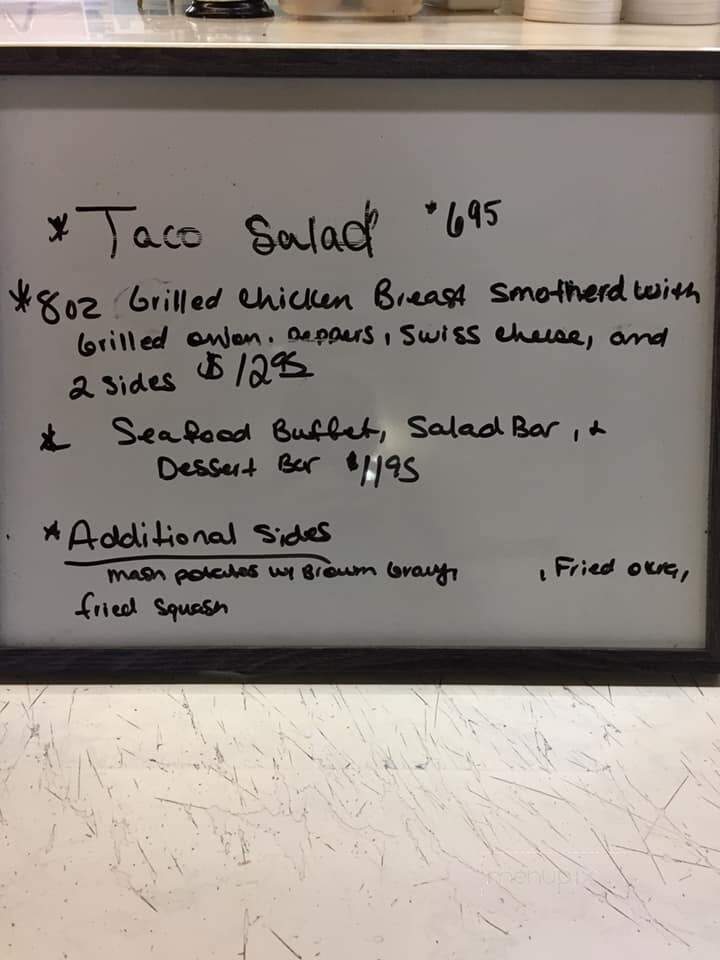 * Taco Salad $695
* 8oz Grilled Chicken Breast Smotherd with
Grilled onion, peppers, Swiss cheese, and
2 sides $1295
* Seafood Buffet, Salad Bar, &
Dessert Bar $1195
* Additional Sides
mash potatoes w/ Brown Gravy, , Fried okra,
fried squash
menupix